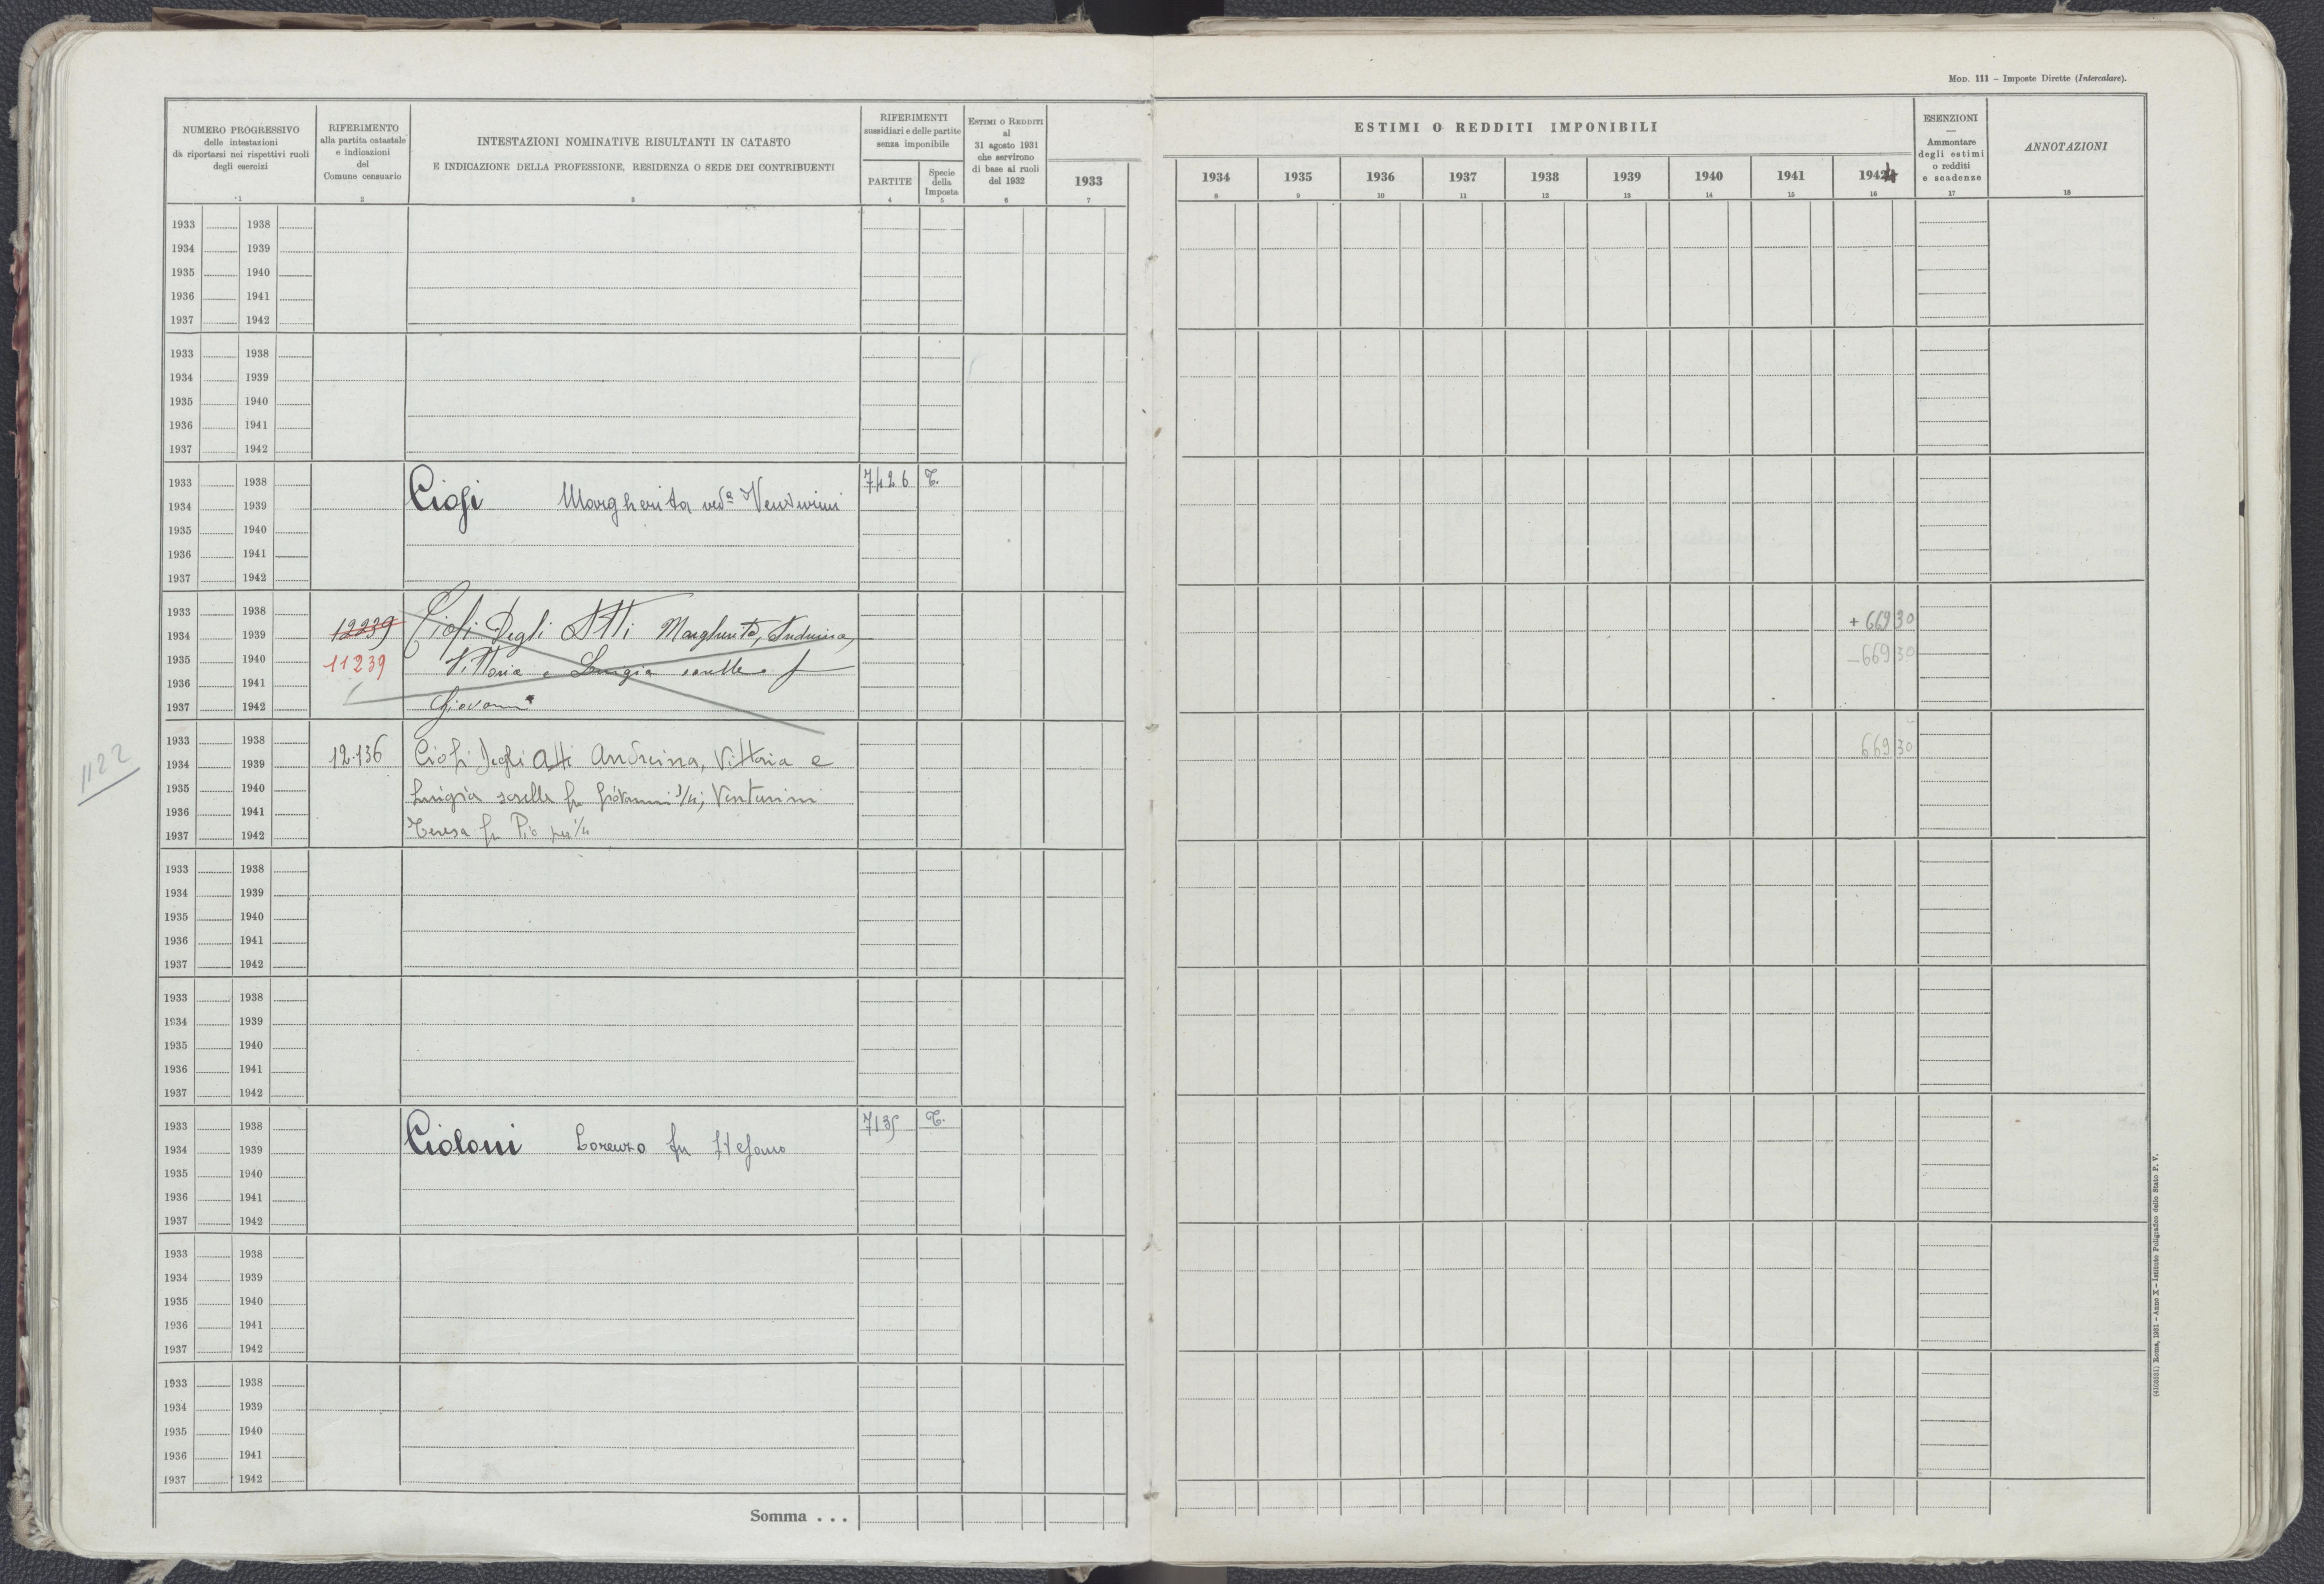 MOD. 111 – Imposte Dirette (Intercalare).
NUMERO PROGRESSIVO
delle intestazioni
da riportarsi nei rispettivi ruoli
degli esercizi
1
RIFERIMENTO
alla partita catastale
e indicazioni
del
Comune censuario
2
INTESTAZIONI NOMINATIVE RISULTANTI IN CATASTO
E INDICAZIONE DELLA PROFESSIONE, RESIDENZA O SEDE DEI CONTRIBUENTI
3
RIFERIMENTI
sussidiari e delle partite
senza imponibile
PARTITE
4
Specie
della
Imposta
5
ESTIMI O REDDITI
al
31 agosto 1931
che servirono
di base ai ruoli
del 1932
6
1933
7
ESTIMI O REDDITI IMPONIBILI
1934 1935 1936 1937 1938 1939 1940 1941 1942
8 9 10 11 12 13 14 15 16
ESENZIONI
—
Ammontare
degli estimi
o redditi
e scadenze
17
ANNOTAZIONI
18
1933 1938
1934 1939
1935 1940
1936 1941
1937 1942
1933 1938
1934 1939
1935 1940
1936 1941
1937 1942
1933 1938 7426 T.
1934 1939 Ciofi Margherita ved.a Venturini
1935 1940
1936 1941
1937 1942
1933 1938 + 669 30
1934 1939 12239 Ciofi Degli Atti Margherita, Andreina,
1935 1940 11239 Vittoria e Luigia sorelle f
– 669 30
1936 1941
1937 1942 Giovanni
1933 1938 669 30
1934 1939 12.136 Ciofi Degli Atti Andreina, Vittoria e
1935 1940 Luigia sorelle fu Giovanni 3/4; Venturini
1936 1941
1937 1942 Teresa fu Pio per 1/4
1122
1933 1938
1934 1939
1935 1940
1936 1941
1937 1942
1933 1938
1934 1939
1935 1940
1936 1941
1937 1942
1933 1938 7135 T.
1934 1939 Cioloni Lorenzo fu Stefano
1935 1940
1936 1941
1937 1942
1933 1938
1934 1939
1935 1940
1936 1941
1937 1942
1933 1938
1934 1939
1935 1940
1936 1941
1937 1942
Somma . . .
Roma, 1931 – Anno X – Istituto Poligrafico dello Stato P. V.